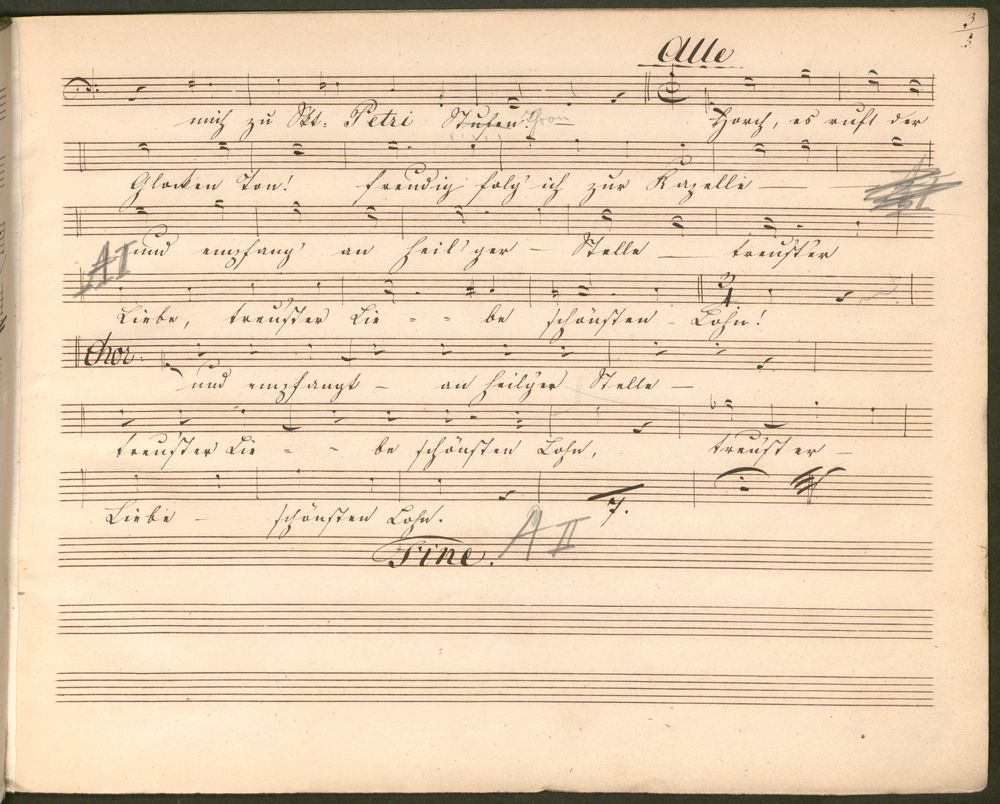 3
3
Alle
mich zu Skt. Petri Stufen. Thron Horch, es ruft der
Glocken Ton! freudig folg' ich zur Kapelle —
und empfang' an heil'ger — Stelle — treuster
A I
Liebe, treuster Lie - - be schönsten - Lohn!
3
4
Chor.
und empfangt — an heilger Stelle —
treuster Lie - - be schönsten Lohn, treuster —
Liebe — schönsten Lohn.
7.
Fine. A II